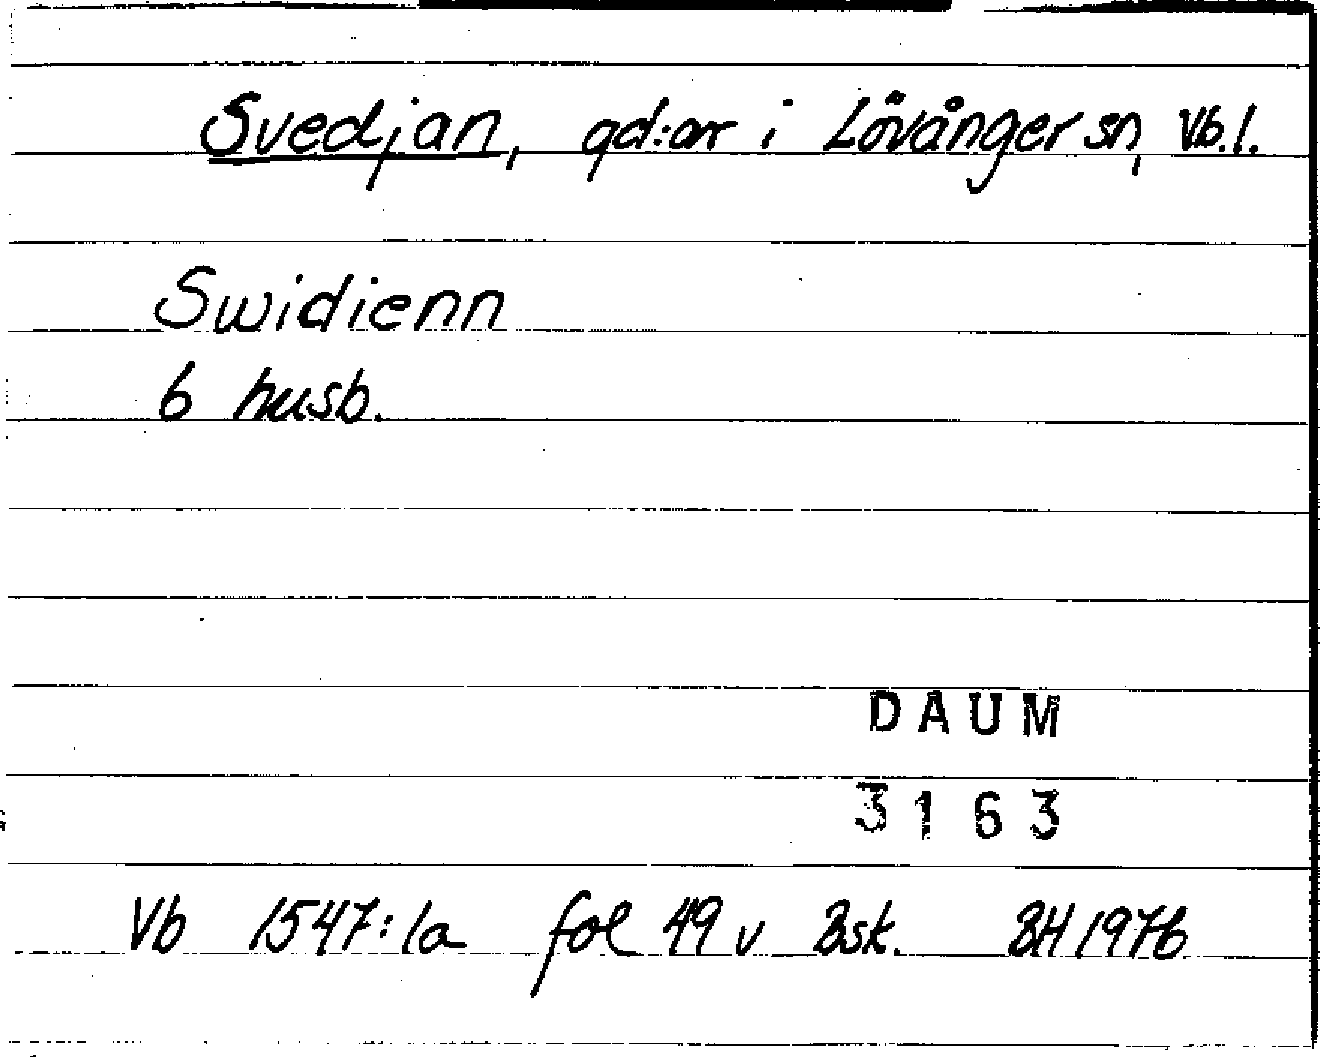 Svedjan, gd:ar i Lövånger sn, Vb.l.
Swidienn
6 husb.
DAUM
3163
Vb 1547:1a fol 49 v Bsk. BH 1976